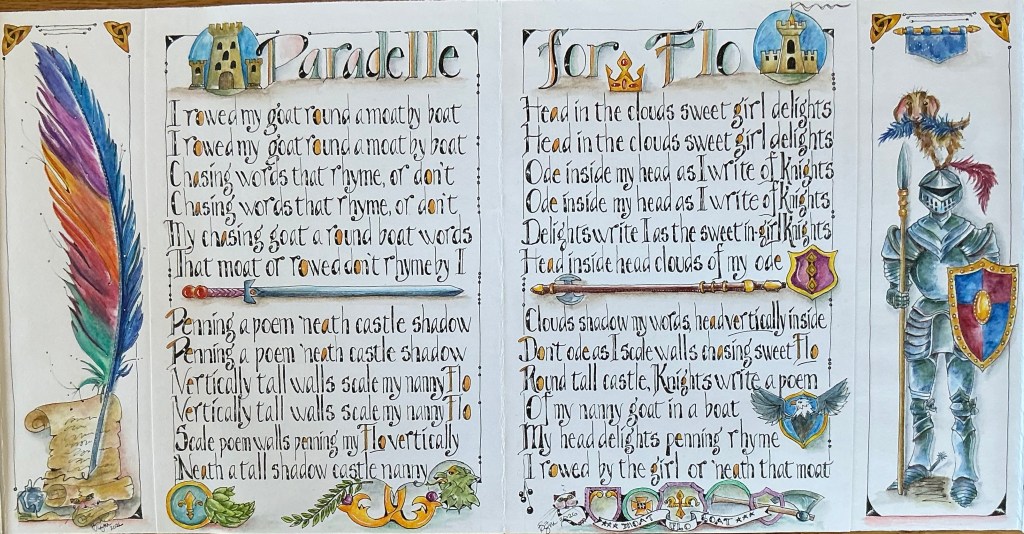 Paradelle
I rowed my goat round a moat by boat
I rowed my goat round a moat by boat
Chasing words that rhyme, or don't
Chasing words that rhyme, or don't
My chasing goat a round boat words
That moat or rowed don't rhyme by I
Penning a poem 'neath castle shadow
Penning a poem 'neath castle shadow
Vertically tall walls scale my nanny Flo
Vertically tall walls scale my nanny Flo
Scale poem walls penning my Flo vertically
'Neath a tall shadow castle nanny
for Flo
Head in the clouds sweet girl delights
Head in the clouds sweet girl delights
Ode inside my head as I write of Knights
Ode inside my head as I write of Knights
Delights write I as the sweet in girl Knights
Head inside head clouds of my ode
Clouds shadow my words, head vertically inside
Don't ode as I scale walls chasing sweet Flo
Round tall castle, Knights write a poem
Of my nanny goat in a boat
My head delights penning rhyme
I rowed by the girl or 'neath that moat
*** MOAT FLO GOAT ***